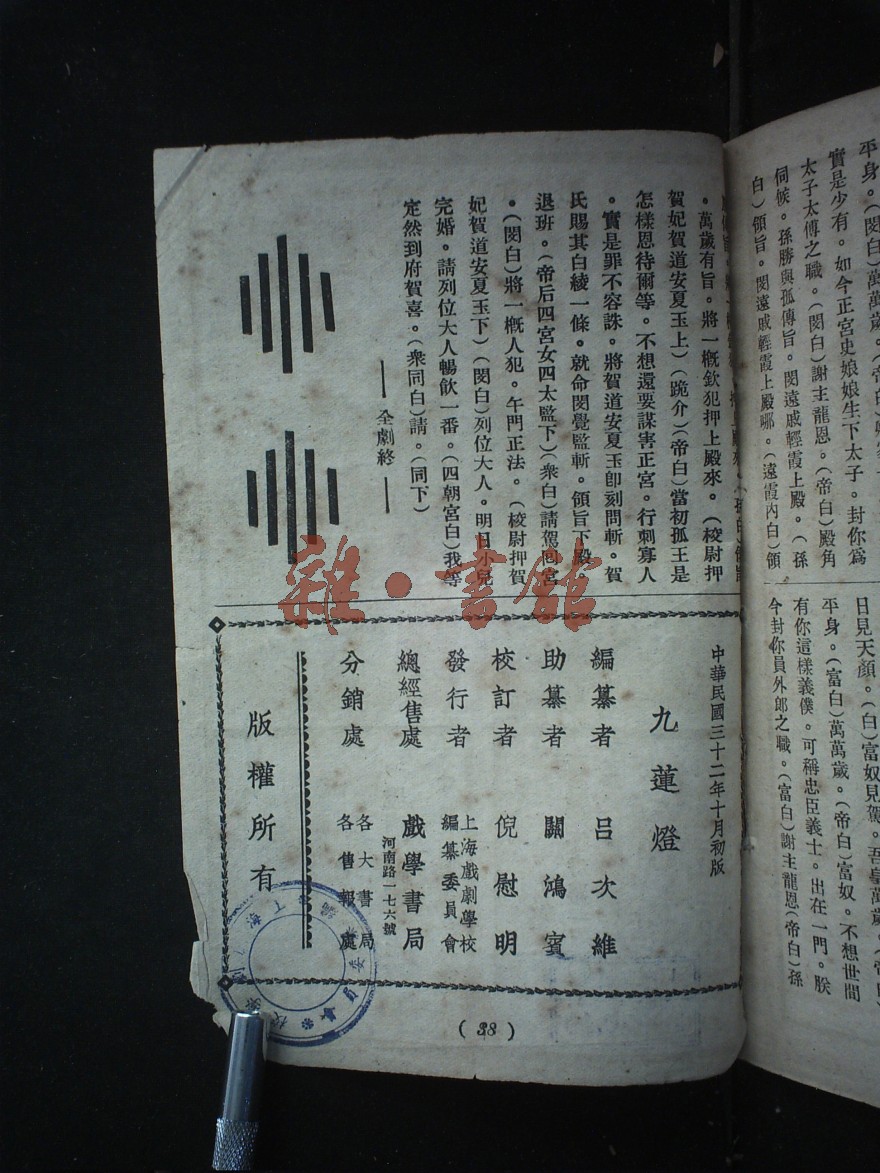 平身。(閔白)萬萬歲。(帝白)
實是少有。如今正宮史娘娘生下太子。封你為
太子太傅之職。(閔白)謝主龍恩。(帝白)殿角
伺候。孫勝與孤傳旨。閔遠戚輕霞上殿。(孫
白)領旨。閔遠戚輕霞上殿哪。(遠霞內白)領
日見天顏。(白)富奴見駕。吾皇萬歲。
平身。(富白)萬萬歲。(帝白)富奴。不想世間
有你這樣義僕。可稱忠臣義士。出在一門。朕
今封你員外郎之職。(富白)謝主龍恩(帝白)孫
。萬歲有旨。將一概欽犯押上殿來。(校尉押
賀妃賀道安夏玉上)(跪介)(帝白)當初孤王是
怎樣恩待爾等。不想還要謀害正宮。行刺寡人
。實是罪不容誅。將賀道安夏玉卽刻問斬。賀
氏賜其白綾一條。就命閔覺監斬。領旨下殿。
退班。(帝后四宮女四太監下)(衆白)請駕回宮
。(閔白)將一概人犯。午門正法。(校尉押賀
妃賀道安夏玉下)(閔白)列位大人。明日小兒
完婚。請列位大人暢飲一番。(四朝官白)我等
定然到府賀喜。(衆同白)請。(同下)
—— 全劇終 ——
雜·書館
中華民國三十二年十月初版
九蓮燈
編纂者 呂次維
助纂者 關鴻賓
校訂者 倪慰明
發行者 上海戲劇學校編纂委員會
總經售處 戲學書局
河南路一七六號
分銷處 各大書局
各售報處
版權所有
(38)